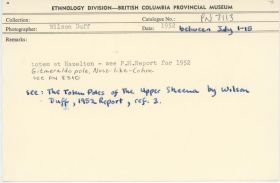 ETHNOLOGY DIVISION—BRITISH COLUMBIA PROVINCIAL MUSEUM
Collection: Catalogue No.: PN 7113
Photographer: Wilson Duff Date: 1952 between July 1-15
Remarks:
totem at Hazelton - see P.M.Report for 1952
Gitemraldo pole, Nose-like-Coho
see PN
see: The Totem Poles of the Upper Skeena by Wilson
Duff, 1952 Report, ref. 3.